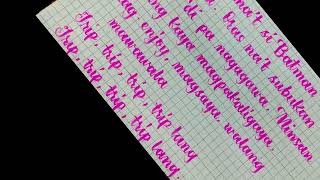 na't si Batman
Oras na't subukan
di pa nagagawa. Minsan
ang kaya magpakaligaya
ag enjoy, magsaya, walang
mawawala
Trip, trip, trip, trip lang
Trip, trip, trip, trip lang.